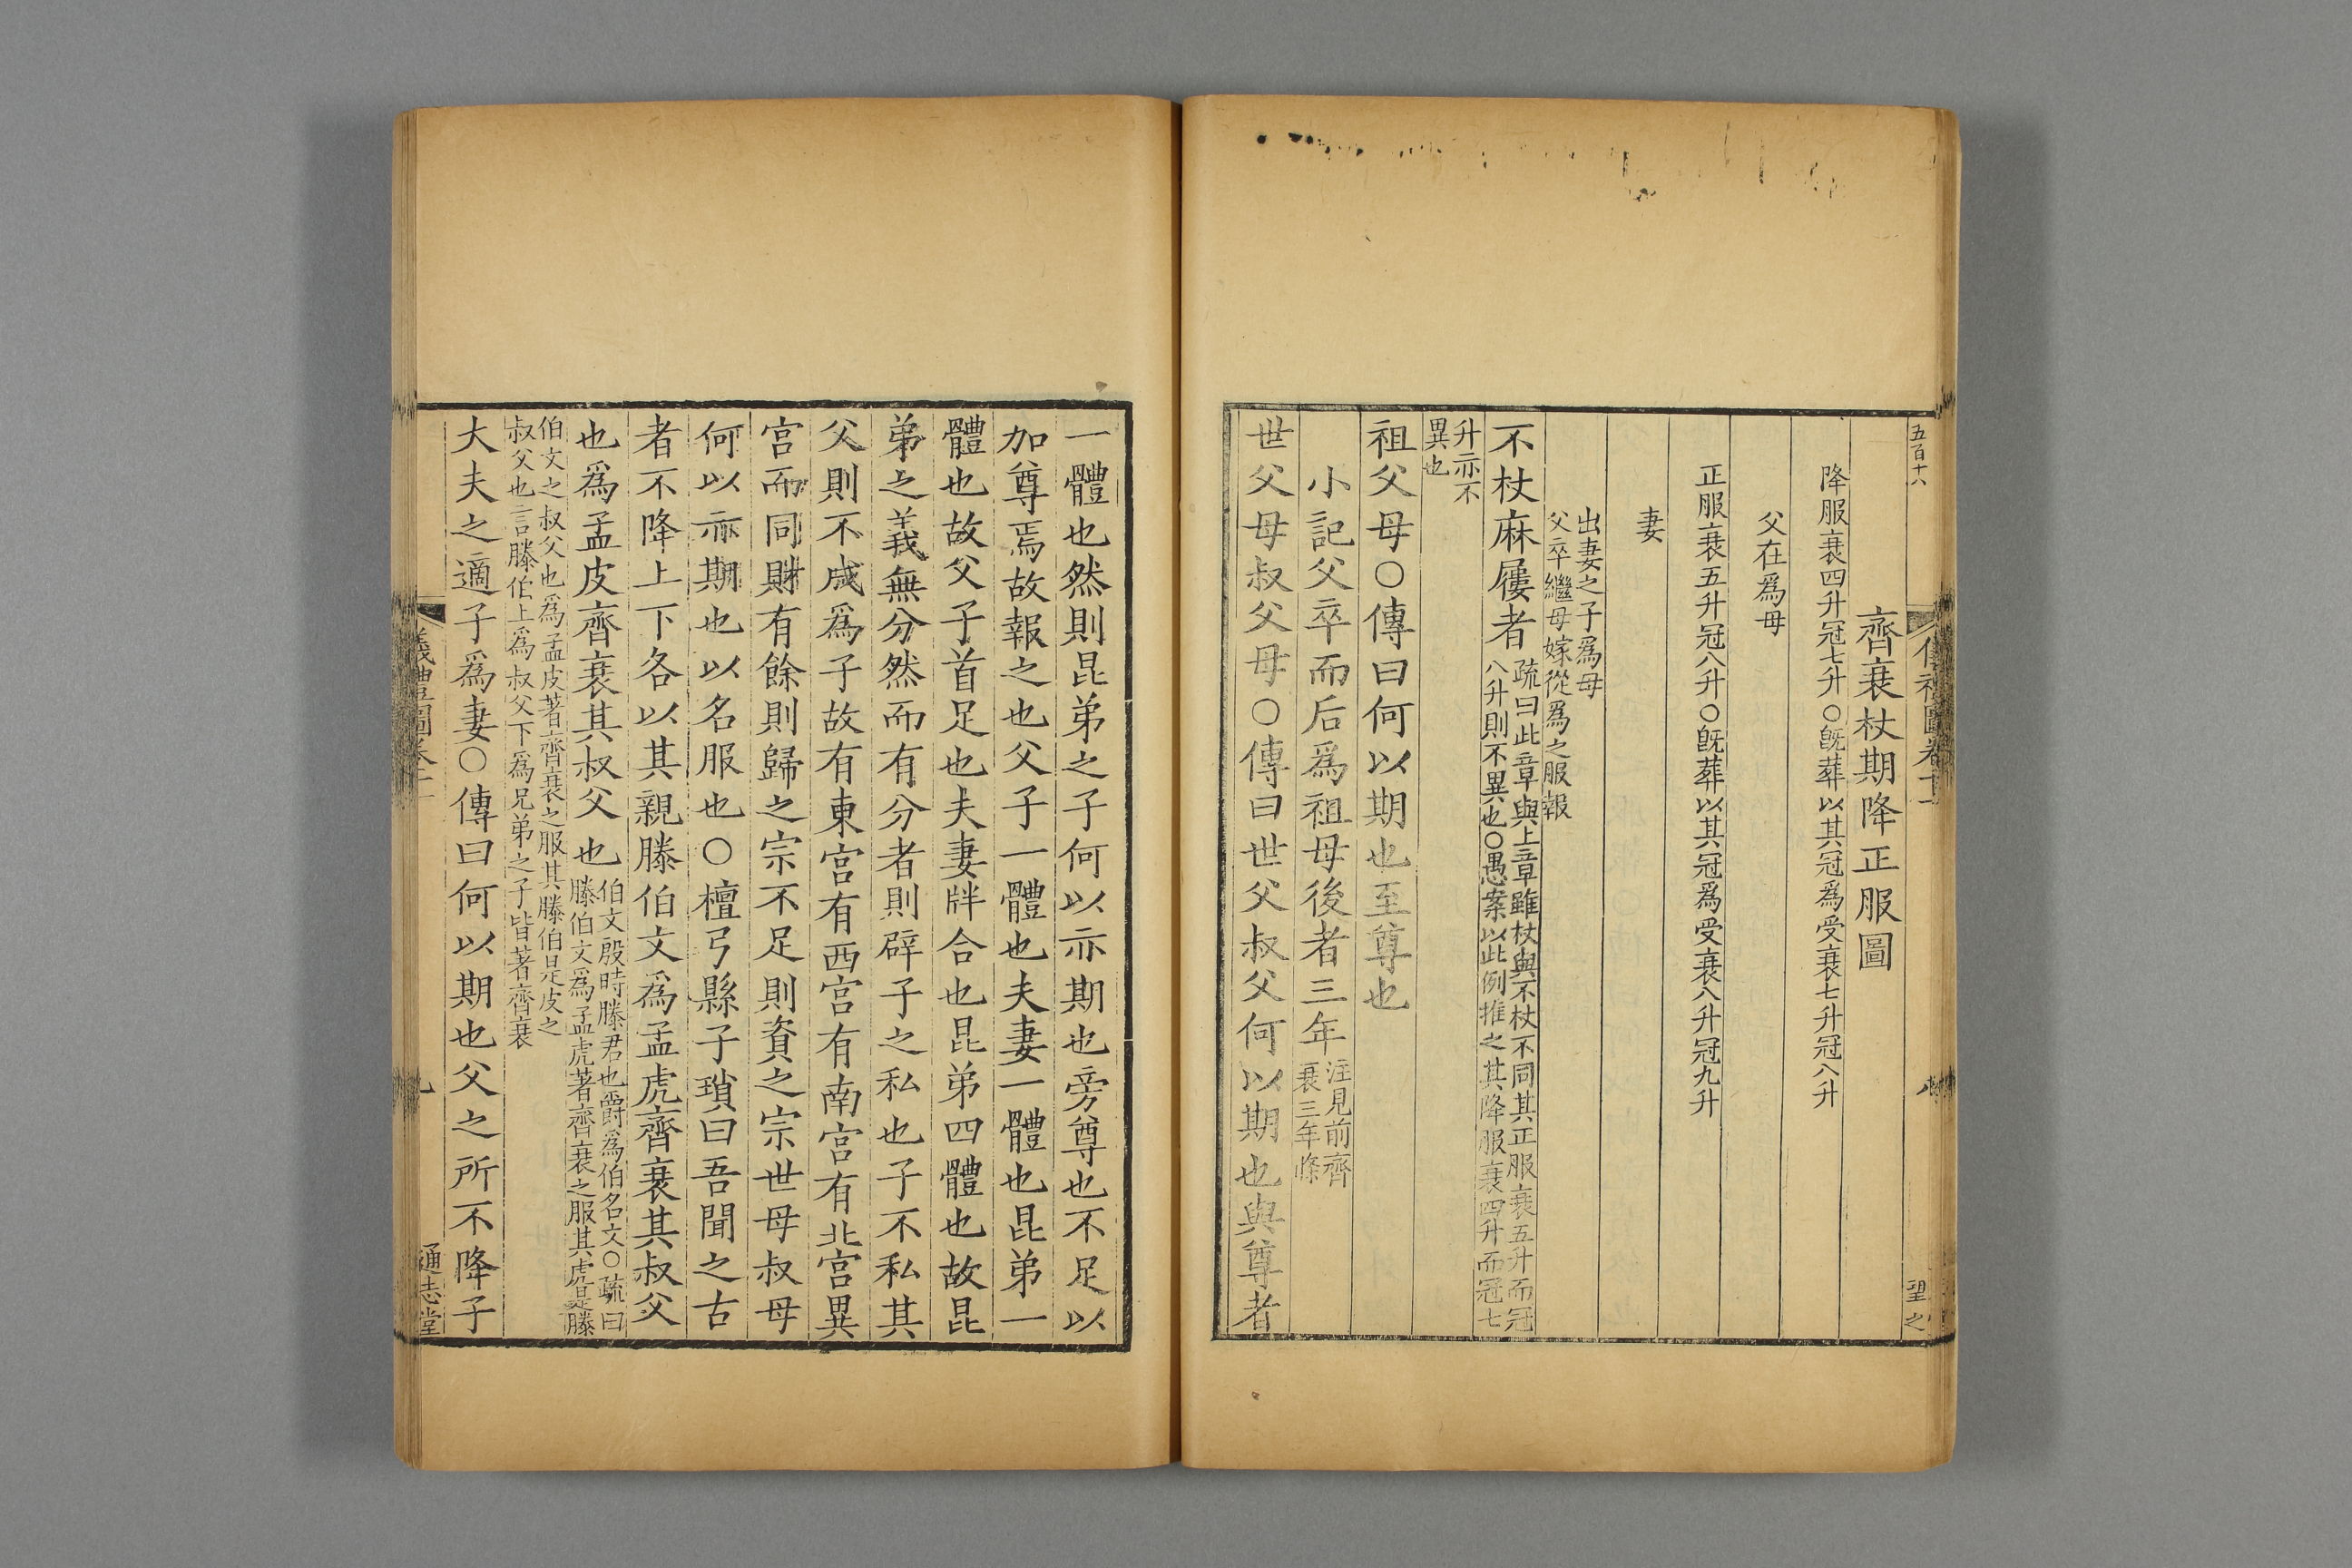 五百十六
儀禮圖卷十一
望之
齊衰杖期降正服圖
降服衰四升冠七升〇既葬以其冠爲受衰七升冠八升
父在爲母
正服衰五升冠八升〇既葬以其冠爲受衰八升冠九升
妻
出妻之子爲母
父卒繼母嫁從爲之服報
不杖麻屨者
疏曰此章與上章雖杖與不杖不同其正服衰五升而冠
八升則不異也〇愚案以此例推之其降服衰四升而冠七
升亦不
異也
祖父母〇傳曰何以期也至尊也
小記父卒而后爲祖母後者三年
注見前齊
衰三年條
世父母叔父母〇傳曰世父叔父何以期也與尊者
一體也然則昆弟之子何以亦期也旁尊也不足以
加尊焉故報之也父子一體也夫妻一體也昆弟一
體也故父子首足也夫妻牉合也昆弟四體也故昆
弟之義無分然而有分者則辟子之私也子不私其
父則不成爲子故有東宮有西宮有南宮有北宮異
宮而同財有餘則歸之宗不足則資之宗世母叔母
何以亦期也以名服也〇檀弓縣子瑣曰吾聞之古
者不降上下各以其親滕伯文爲孟虎齊衰其叔父
也爲孟皮齊衰其叔父也
伯文殷時滕君也爵爲伯名文〇疏曰
滕伯文爲孟虎著齊衰之服其虎是滕
伯文之叔父也爲孟皮著齊衰之服其滕伯是皮之
叔父也言滕伯上爲叔父下爲兄弟之子皆著齊衰
大夫之適子爲妻〇傳曰何以期也父之所不降子
儀禮圖卷十一
九
通志堂